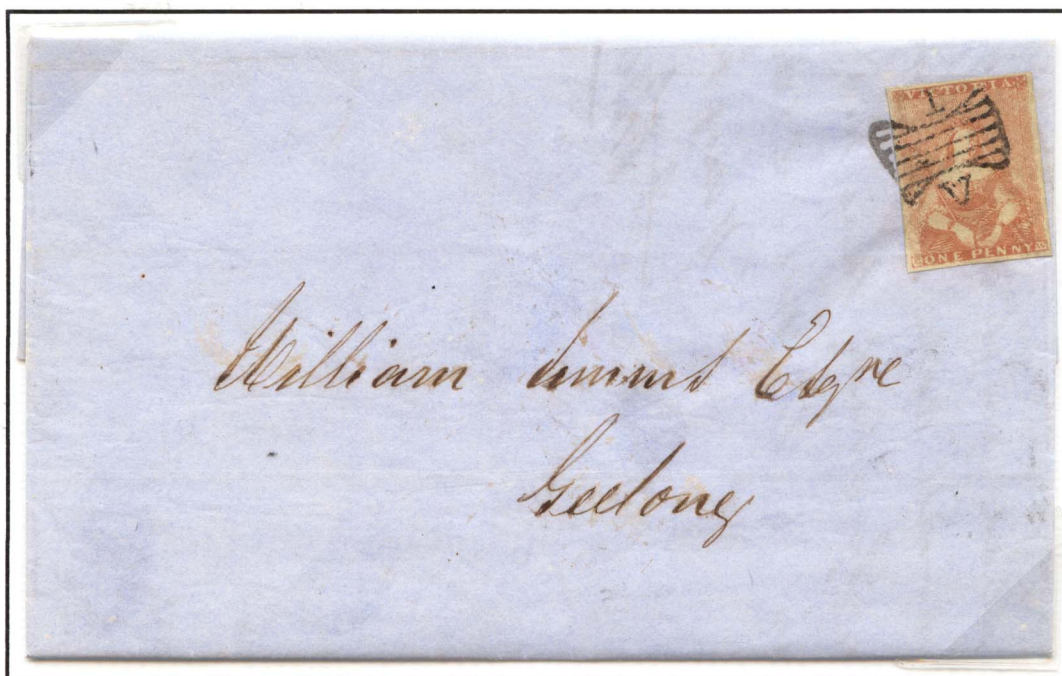 VICTORIA
1
V
ONE PENNY
William Timms Esqre
Geelong